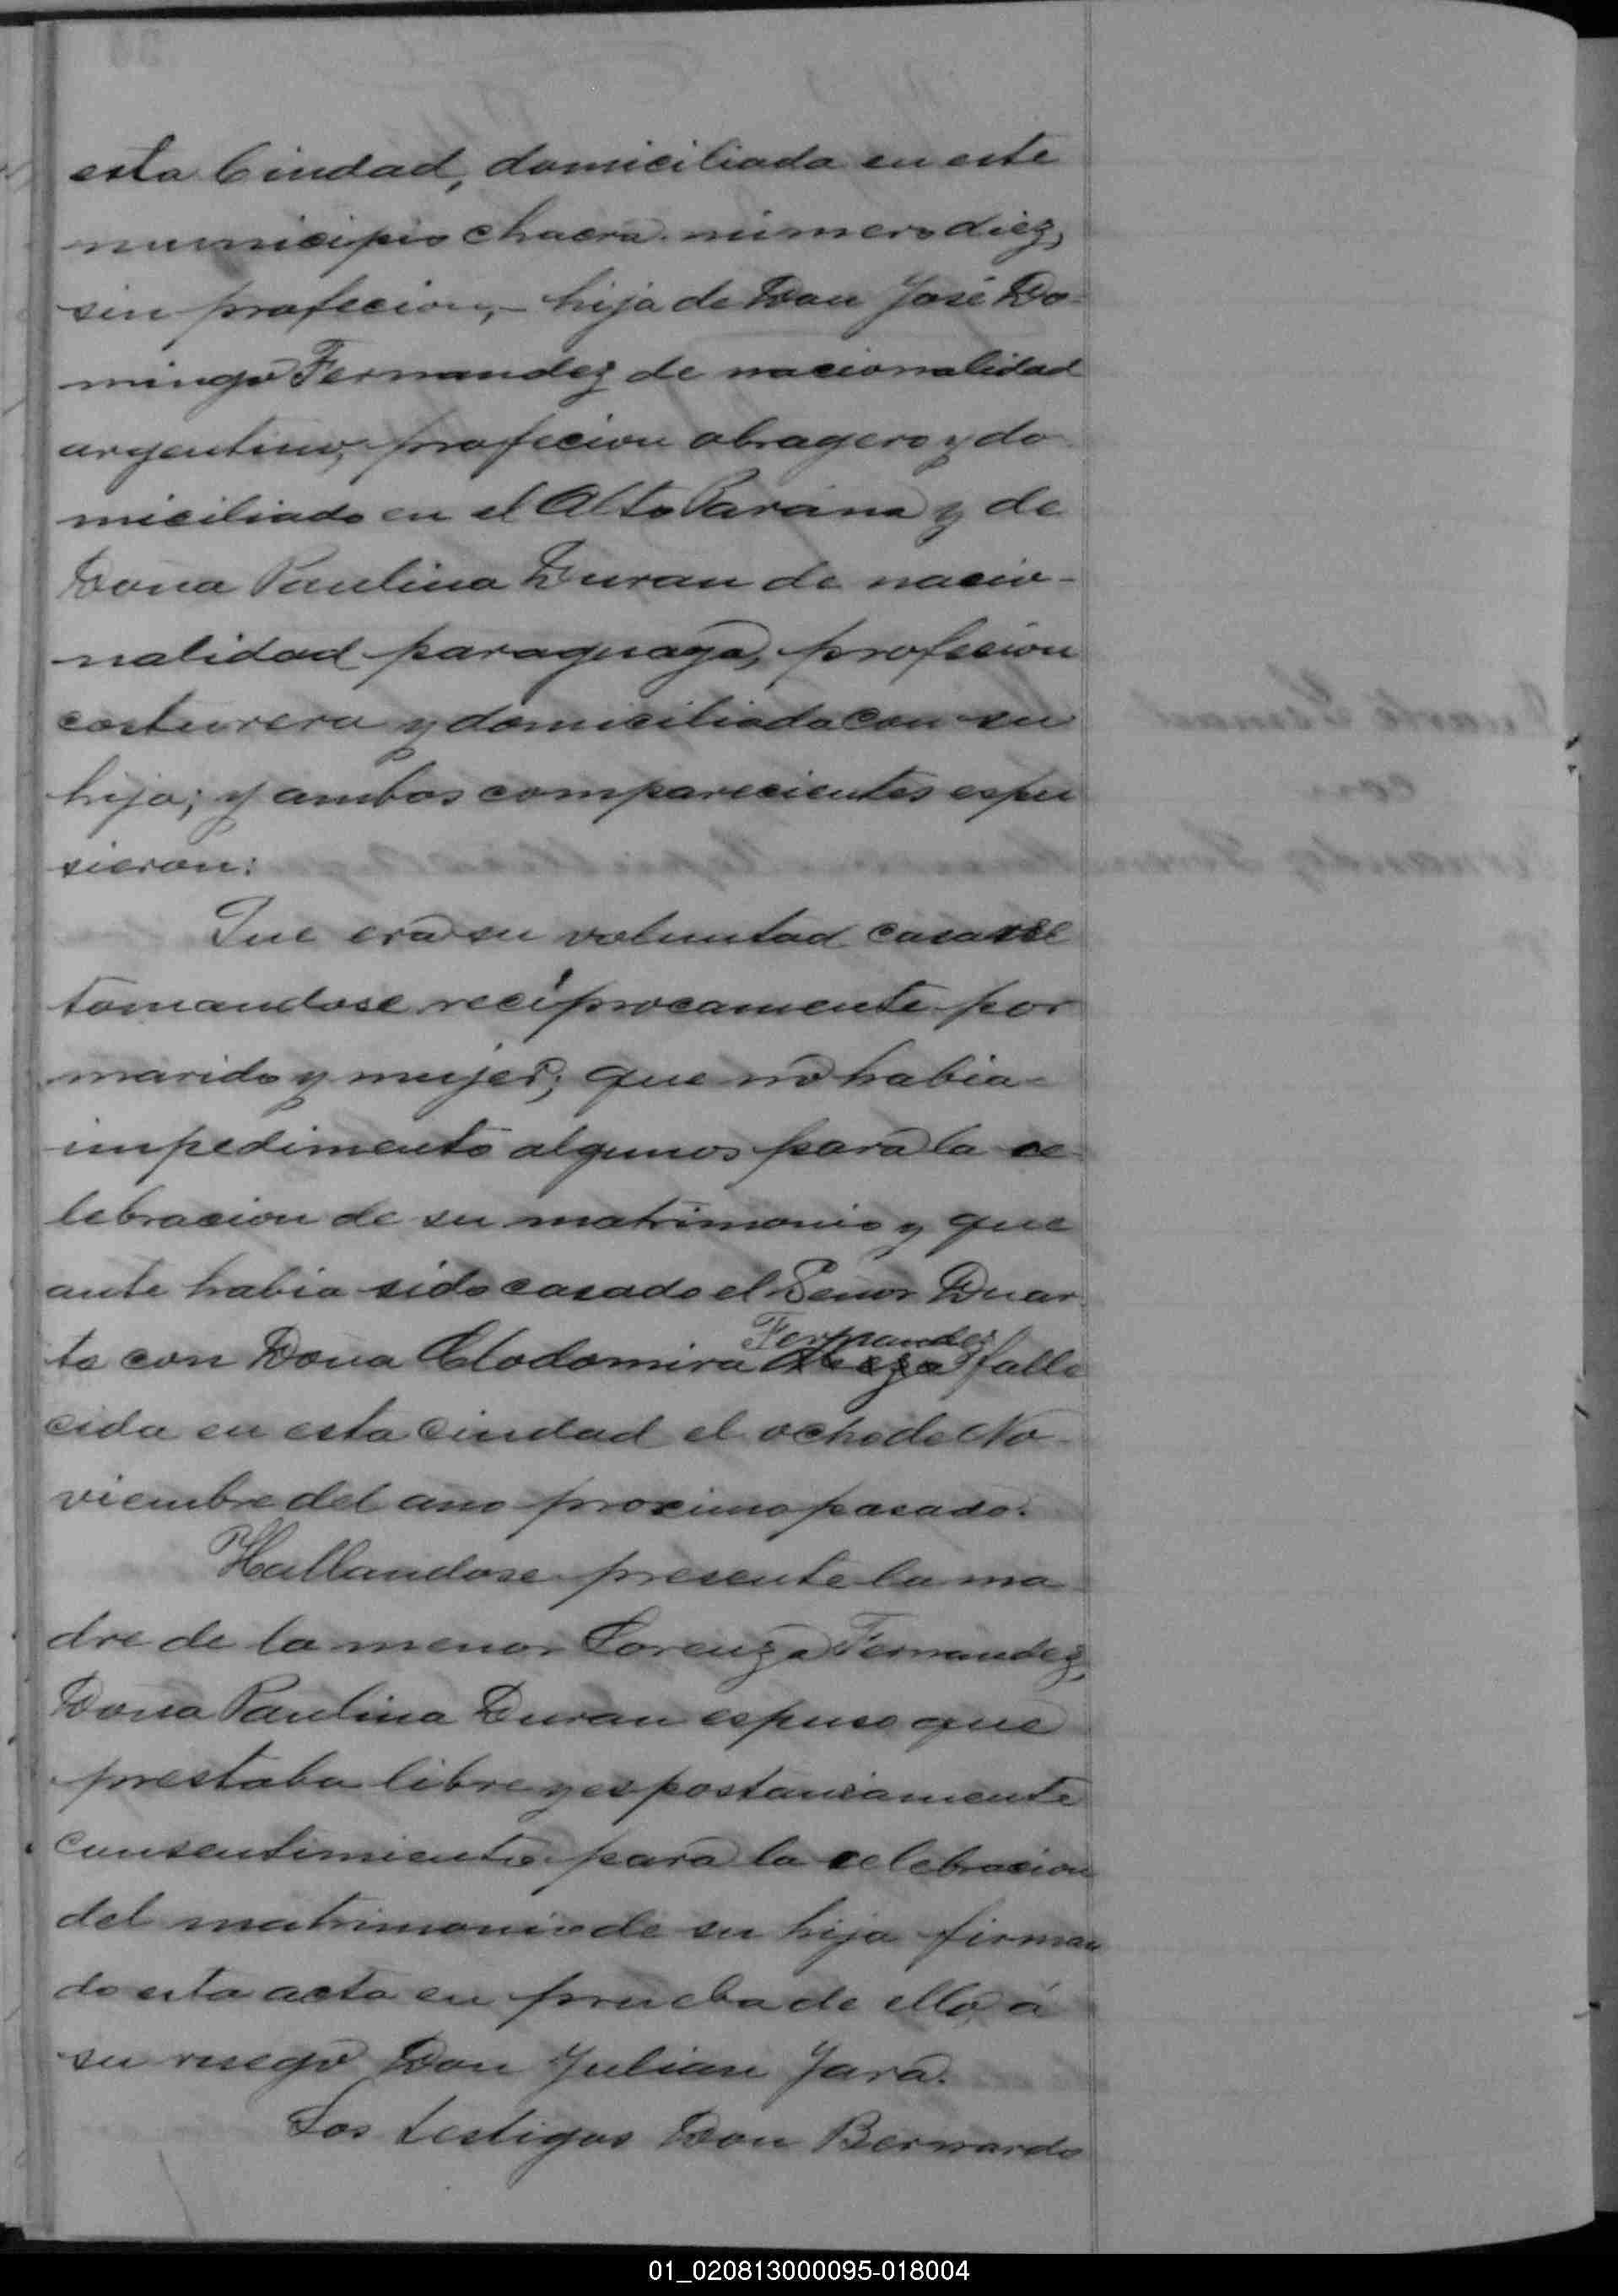 esta Ciudad, domiciliada en este
municipio chacra numero diez,
sin profecion, - hija de Don José Do-
mingo Fernandez de nacionalidad
argentino, profecion obragero y do
miciliado en el Alto Parana y de
Dona Paulina Duran de nacio-
nalidad paraguaya, profecion
costurera y domiciliada con su
hija; y ambos comparecientes espu
sieron:
Que era su voluntad casarse
tomandose recíprocamente por
marido y mujer; que no habia
impedimento algunos para la ce
lebracion de su matrimonio y que
ante habia sido casado el Senor Duar
te con Dona Clodomira Fernandez falle
cida en esta ciudad el ocho de No-
viembre del ano proximo pasado.
Hallandose presente la ma
dre de la menor Lorenza Fernandez,
Dona Paulina Duran espuso que
prestaba libre y espostaneamente
consentimiento para la celebracion
del matrimonio de su hija firman
do esta acta en prueba de ello, á
su ruego Don Julian Jara.
Los testigos Don Bernardo
01_020813000095-018004